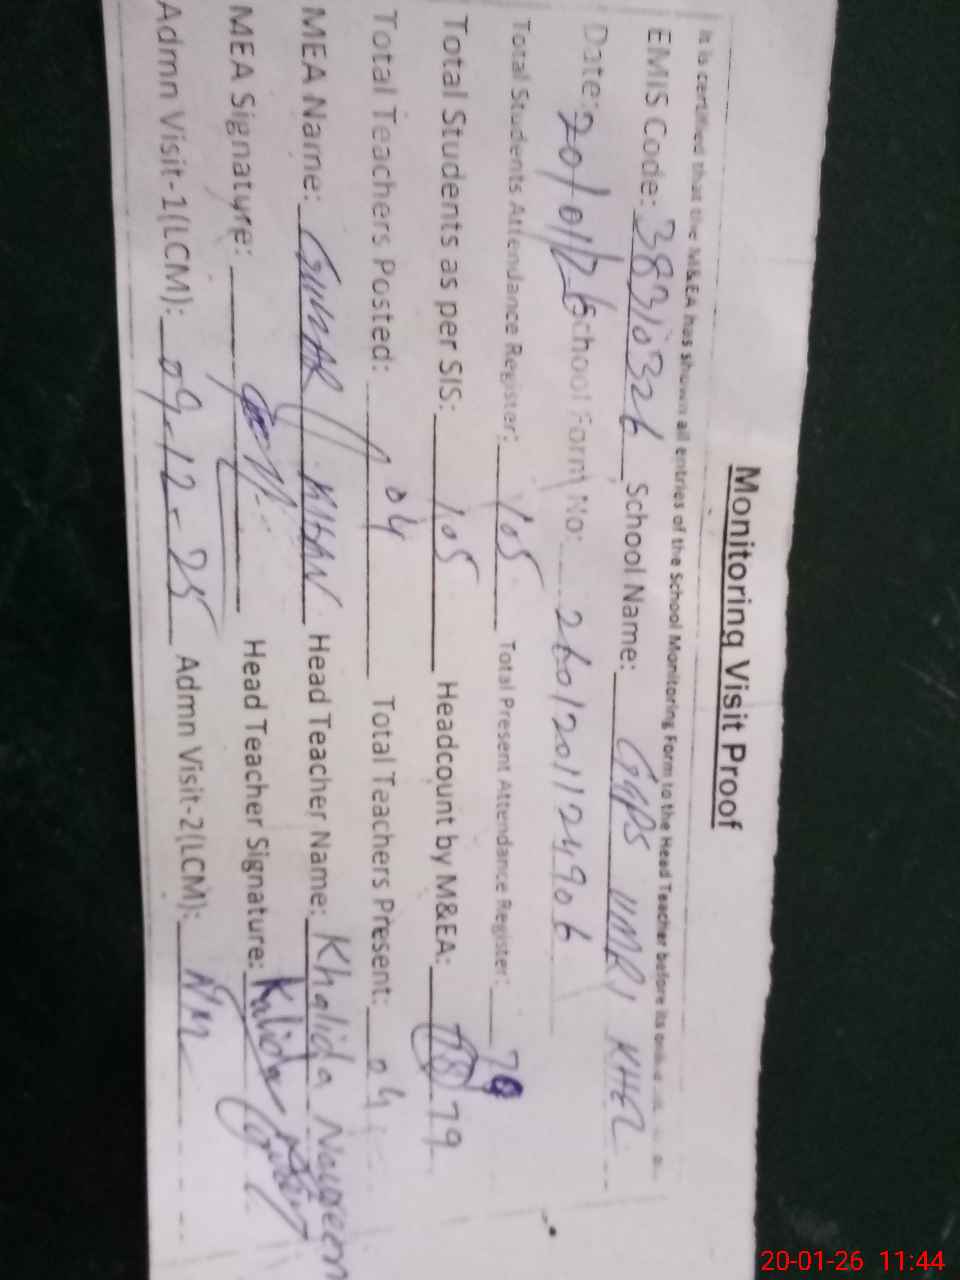 Monitoring Visit Proof
It is certified that the M&EA has shown all entries of the School Monitoring Form to the Head Teacher before its
EMIS Code: 38310326 School Name: GGPS UMRI KHEL
Date: 20/01/26 School Form No: 2601201124906
Total Students Attendance Register: 105 Total Present Attendance Register: 79
Total Students as per SIS: 105 Headcount by M&EA: 79
Total Teachers Posted: 04 Total Teachers Present: 04
MEA Name: KHAN Head Teacher Name: Khalida Noureen
MEA Signature: Head Teacher Signature: Kalida
Admn Visit-1(LCM): 09-12-25 Admn Visit-2(LCM): NM
20-01-26 11:44